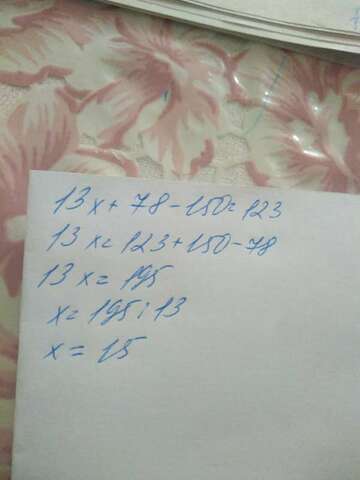 13x+78-150=123
13x=123+150-78
13x=195
x=195:13
x=15